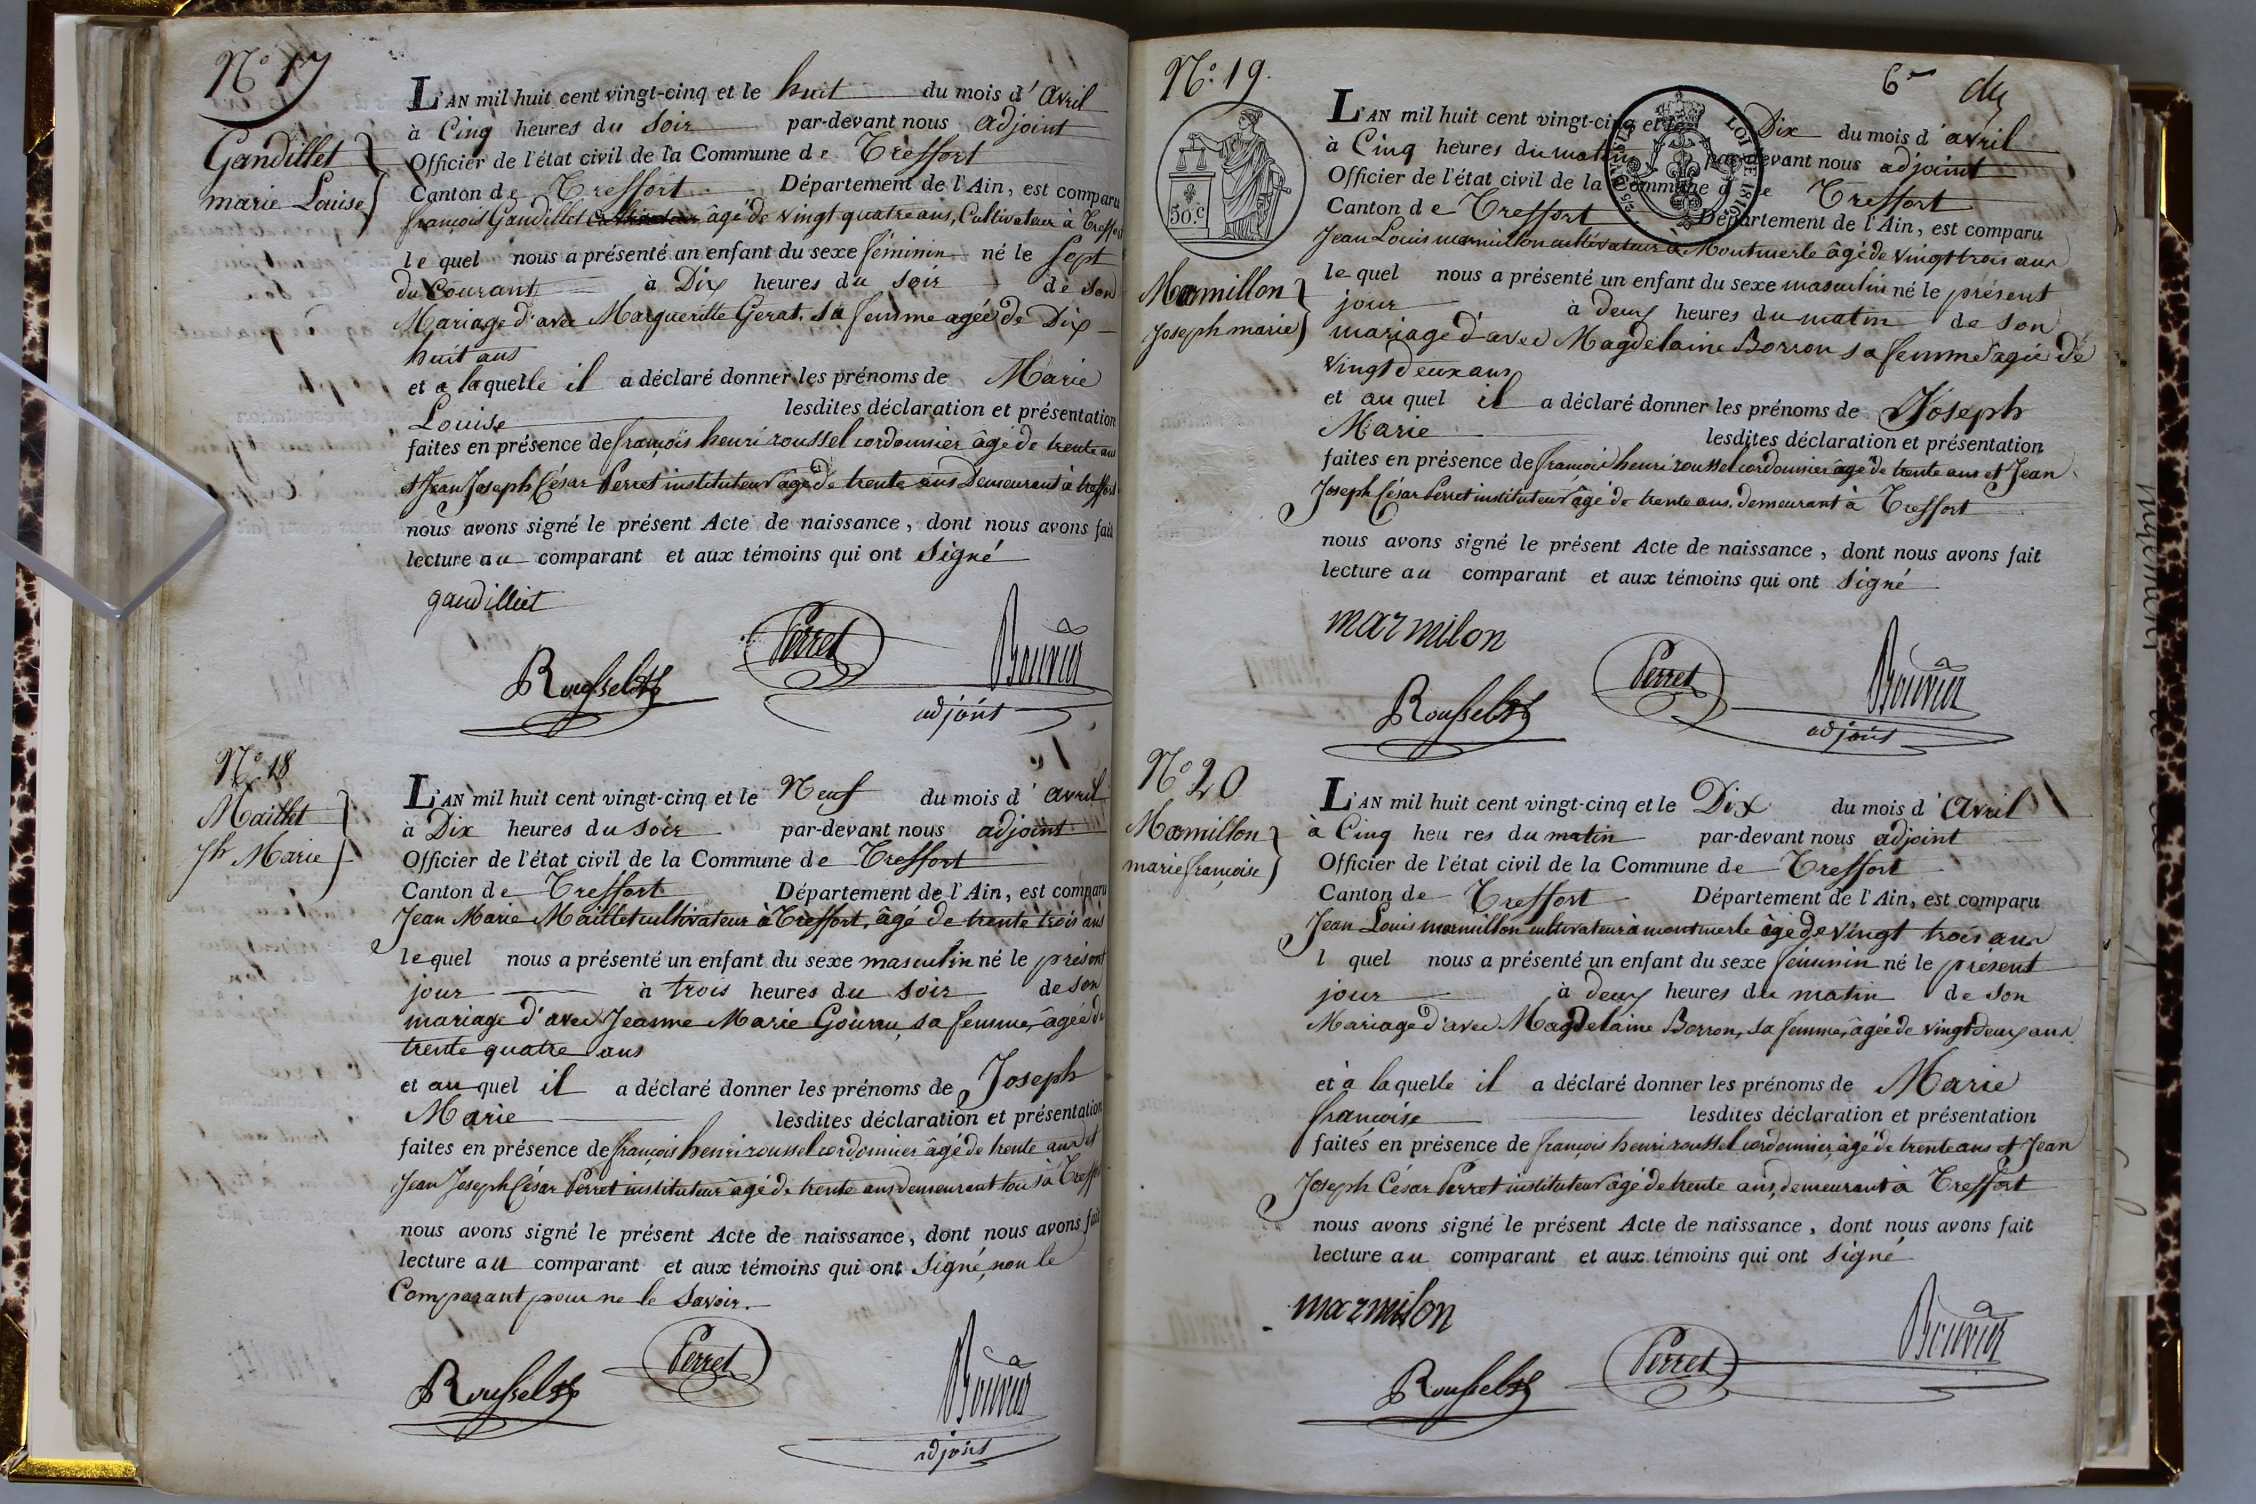 N.º 17
Gandillet
marie Louise
L'AN mil huit cent vingt-cinq et le huit du mois d' avril
à Cinq heures du soir par-devant nous adjoint
Officier de l'état civil de la Commune de Treffort
Canton de Treffort Département de l'Ain, est comparu
françois Gandillet âgé de vingt quatre ans, Cultivateur à Treffort
lequel nous a présenté un enfant du sexe féminin né le sept
du Courant à Dix heures du soir de son
Mariage d'avec Marguerite Gerat, sa femme agée de Dix
huit ans
et a laquelle il a déclaré donner les prénoms de Marie
Louise lesdites déclaration et présentation
faites en présence de françois henri roussel cordonnier âgé de trente ans
et Jean Joseph César Perret instituteur âgé de trente ans Demeurant à treffort
nous avons signé le présent Acte de naissance, dont nous avons fait
lecture au comparant et aux témoins qui ont signé
gandilliet
Perret
Bouvier
Roussel
adjoint
N.º 18
Maillet
Jh Marie
L'AN mil huit cent vingt-cinq et le Neuf du mois d' avril
à Dix heures du soir par-devant nous adjoint
Officier de l'état civil de la Commune de Treffort
Canton de Treffort Département de l'Ain, est comparu
Jean Marie Maillet cultivateur à Treffort, âgé de trente trois ans
lequel nous a présenté un enfant du sexe masculin né le présent
jour à trois heures du soir de son
mariage d'avec Jeanne Marie Gourru, sa femme, âgée de
trente quatre ans
et au quel il a déclaré donner les prénoms de Joseph
Marie lesdites déclaration et présentation
faites en présence de françois henri roussel cordonnier âgé de trente ans et
Jean Joseph César Perret instituteur âgé de trente ans demeurant tous à Treffort
nous avons signé le présent Acte de naissance, dont nous avons fait
lecture au comparant et aux témoins qui ont signé, non le
Comparant pour ne le savoir.
Perret
Roussel
Bouvier
adjoint
N.º 19.
6e
50.c
LOI DE 1816
Marmillon
Joseph marie
L'AN mil huit cent vingt-cinq et le Dix du mois d' avril
à Cinq heures du matin par-devant nous adjoint
Officier de l'état civil de la Commune de Treffort
Canton de Treffort Département de l'Ain, est comparu
Jean Louis marmillon cultivateur à Montmerle âgé de vingt trois ans
lequel nous a présenté un enfant du sexe masculin né le présent
jour à deux heures du matin de son
mariage d'avec Magdelaine Borron sa femme agée de
vingt deux ans
et au quel il a déclaré donner les prénoms de Joseph
Marie lesdites déclaration et présentation
faites en présence de françois henri roussel cordonnier âgé de trente ans et Jean
Joseph César Perret instituteur âgé de trente ans, demeurant à Treffort
nous avons signé le présent Acte de naissance, dont nous avons fait
lecture au comparant et aux témoins qui ont signé
marmilon
Perret
Bouvier
Roussel
adjoint
N.º 20
Marmillon
marie françoise
L'AN mil huit cent vingt-cinq et le Dix du mois d' avril
à Cinq heu res du matin par-devant nous adjoint
Officier de l'état civil de la Commune de Treffort
Canton de Treffort Département de l'Ain, est comparu
Jean Louis marmillon cultivateur à montmerle âgé de vingt trois ans
l quel nous a présenté un enfant du sexe féminin né le présent
jour à deux heures du matin de son
Mariage d'avec Magdelaine Borron, sa femme, âgée de vingt deux ans
et à laquelle il a déclaré donner les prénoms de Marie
françoise lesdites déclaration et présentation
faites en présence de françois henri roussel cordonnier, âgé de trente ans et Jean
Joseph César Perret instituteur âgé de trente ans, demeurant à Treffort
nous avons signé le présent Acte de naissance, dont nous avons fait
lecture au comparant et aux témoins qui ont signé
marmilon
Bouvier
Perret
Roussel